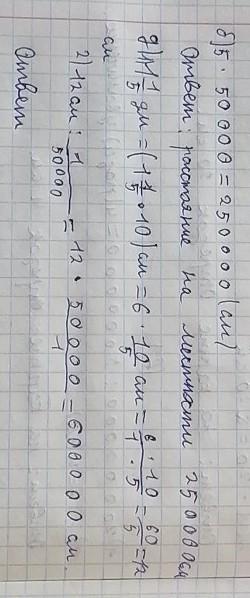 б) 5 · 50000 = 250000 (см)
Ответ: расстояние на местности 250000см
д) 1) 1 1/5 дм = (1 1/5 · 10) см = 6 · 10/5 см = 6/1 · 10/5 = 60/5 = 12
см
2) 12 см : 1/50000 = 12 · 50000/1 = 600000 см.
Ответ